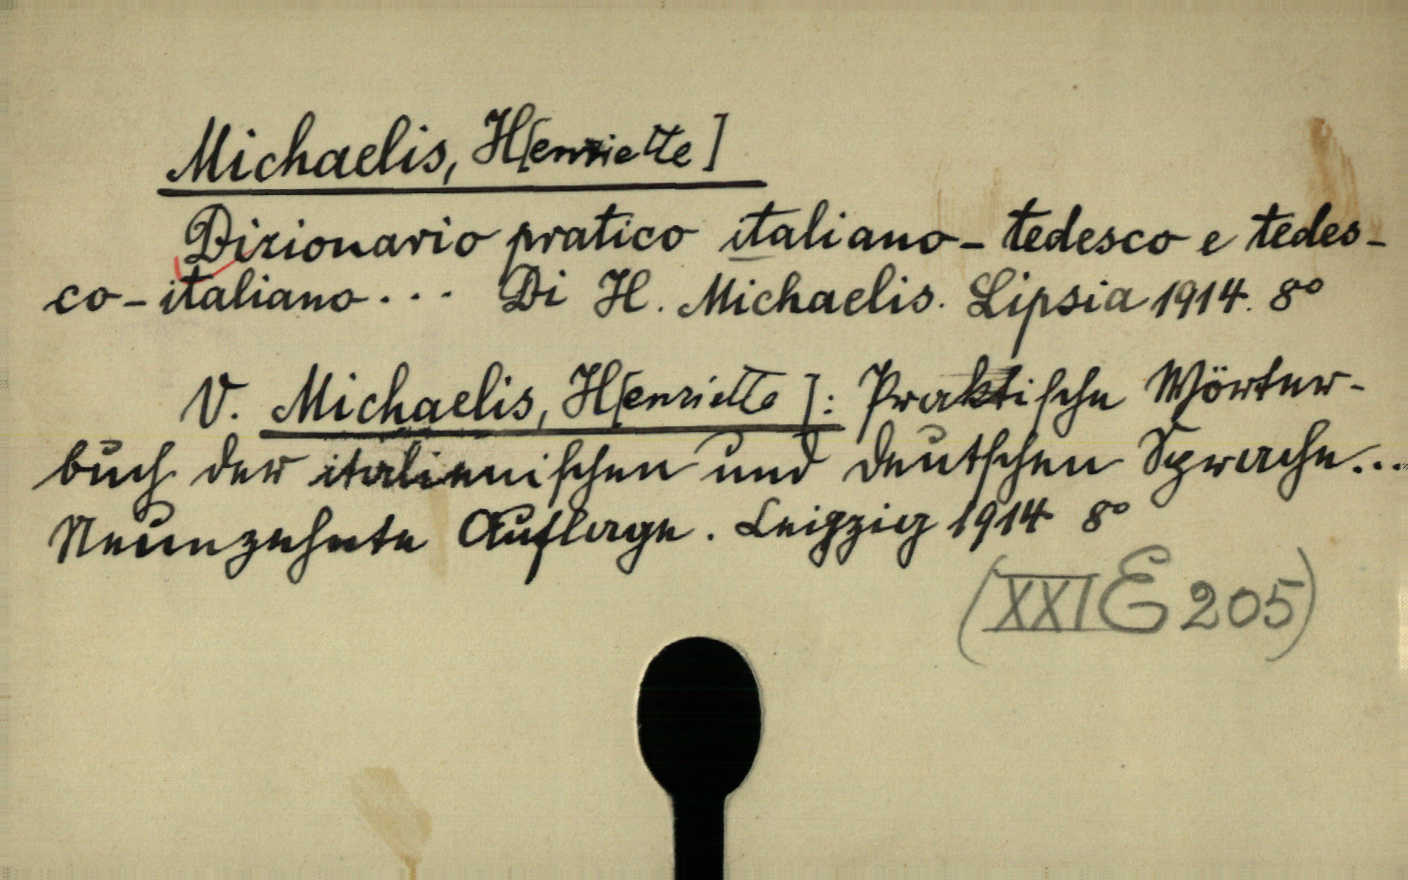 Michaelis, H[enriette]
Dizionario pratico italiano-tedesco e tedes-
co-italiano... Di H. Michaelis. Lipsia 1914. 8°
V. Michaelis, H[enriette]: Praktische Wörter-
buch der italienischen und deutschen Sprache...
Neunzehnte Auflage. Leipzig 1914 8°
(XXI E 205)